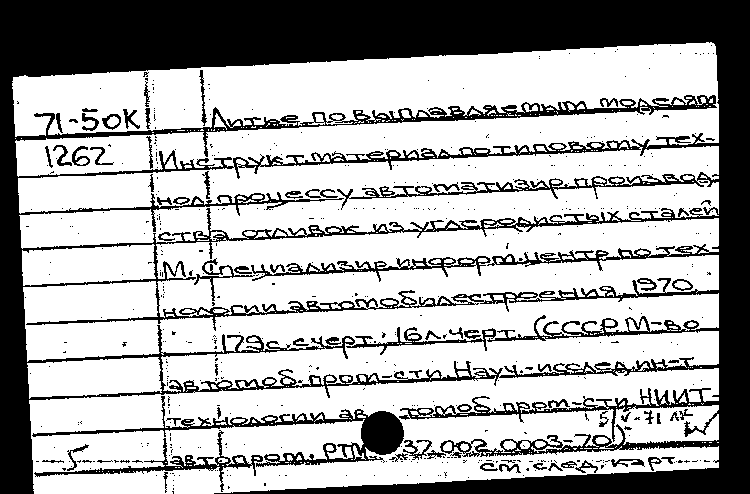 71-50К Литье по выплавляемым моделям
1262 Инструкт.материал по типовому тех-
нол.процессу автоматизир.производ-
ства отливок из углеродистых сталей
М., Специализир.информ.центр по тех-
нологии автомобилестроения, 1970.
179с.с черт.; 16л.черт. (СССР М-во
автомоб.пром-сти. Науч.-исслед.ин-т
технологии автомоб.пром-сти НИИТ-
автопром. РТМ 37.002.0003-70)
5 V-71
5 см.след.карт.